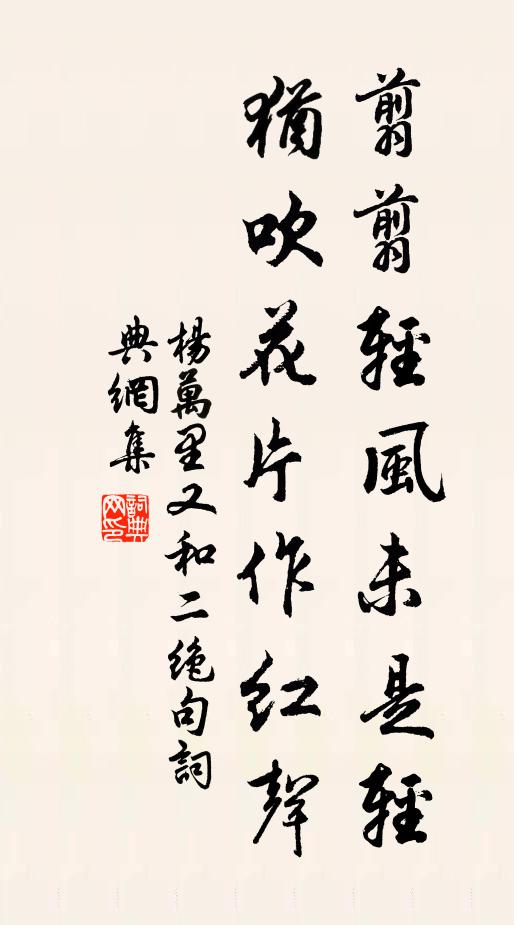 翦翦輕風未是輕
猶吹花片作紅聲
楊萬里又和二絕句詞
典網集
詞典網印